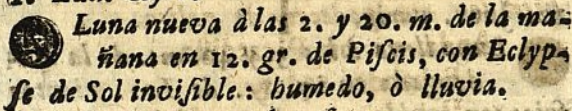 Luna nueva à las 2. y 20. m. de la ma-
ñana en 12. gr. de Piſcis, con Eclyp-
ſe de Sol inviſible: humedo, ò lluvia.